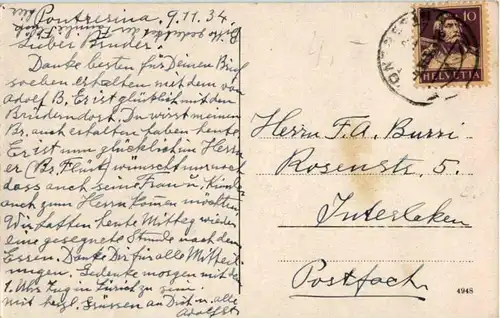 Pontresina, 9.11.34.
Lieber Bruder!
Danke besten für Deinen Brief
soeben erhalten mit dem von
Adolf B. Er ist glücklich mit den
Brüdern dort. Du wirst meinen
Br. auch erhalten haben heute.
Er ist nun glücklich im Herrn
er (Br. Flütt) wünscht nur noch
dass auch seine Frau u. Kinder
auch zum Herrn kommen möchten.
Wir hatten heute Mittag wieder
eine gesegnete Stunde nach dem
Essen. Danke Dir für alle Mitteil-
ungen. Gedenke morgen mit dem
1. Uhr Zug in Zürich zu sein.
mit herzl. Grüssen an Dich u. alle
Adolf St.
4.-
PONTRESINA
10
HELVETIA
Herrn F.A. Burri-
Rosenstr. 5.
Interlaken
Postfach
4948